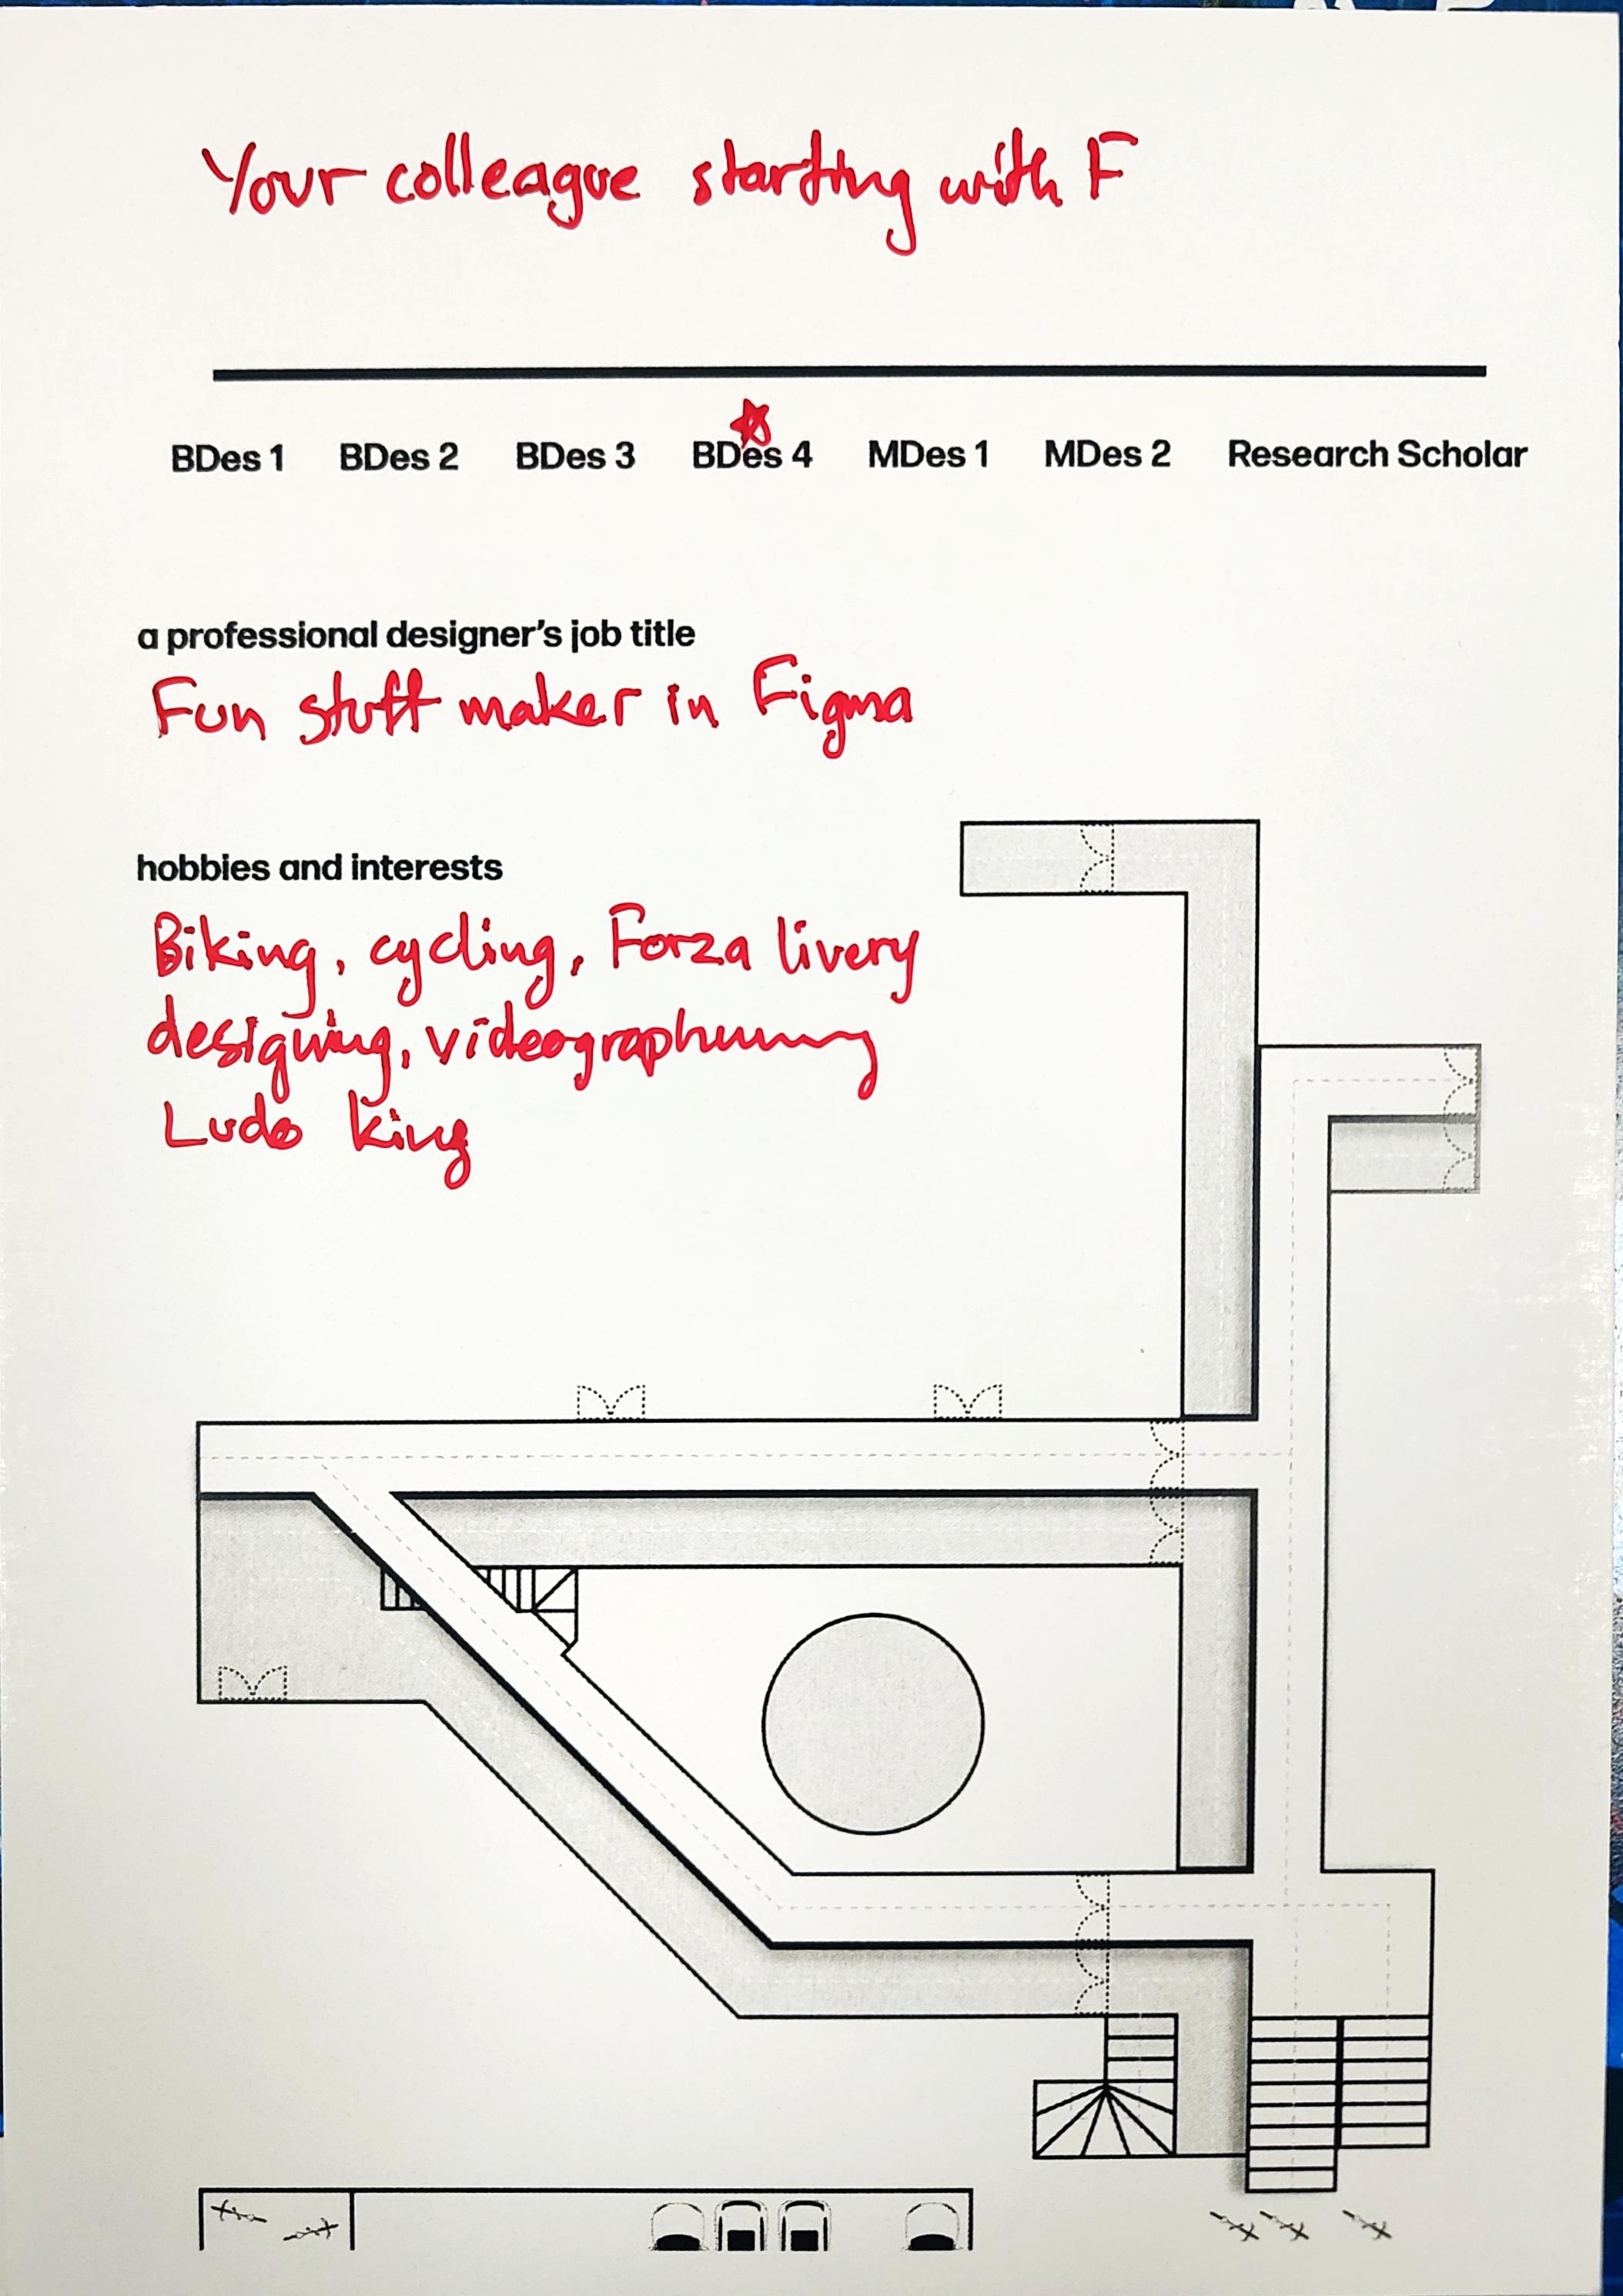 Your colleague starting with F
BDes 1 BDes 2 BDes 3 BDes 4 MDes 1 MDes 2 Research Scholar
a professional designer's job title
Fun stuff maker in Figma
hobbies and interests
Biking, cycling, Forza livery
designing,
Ludo king